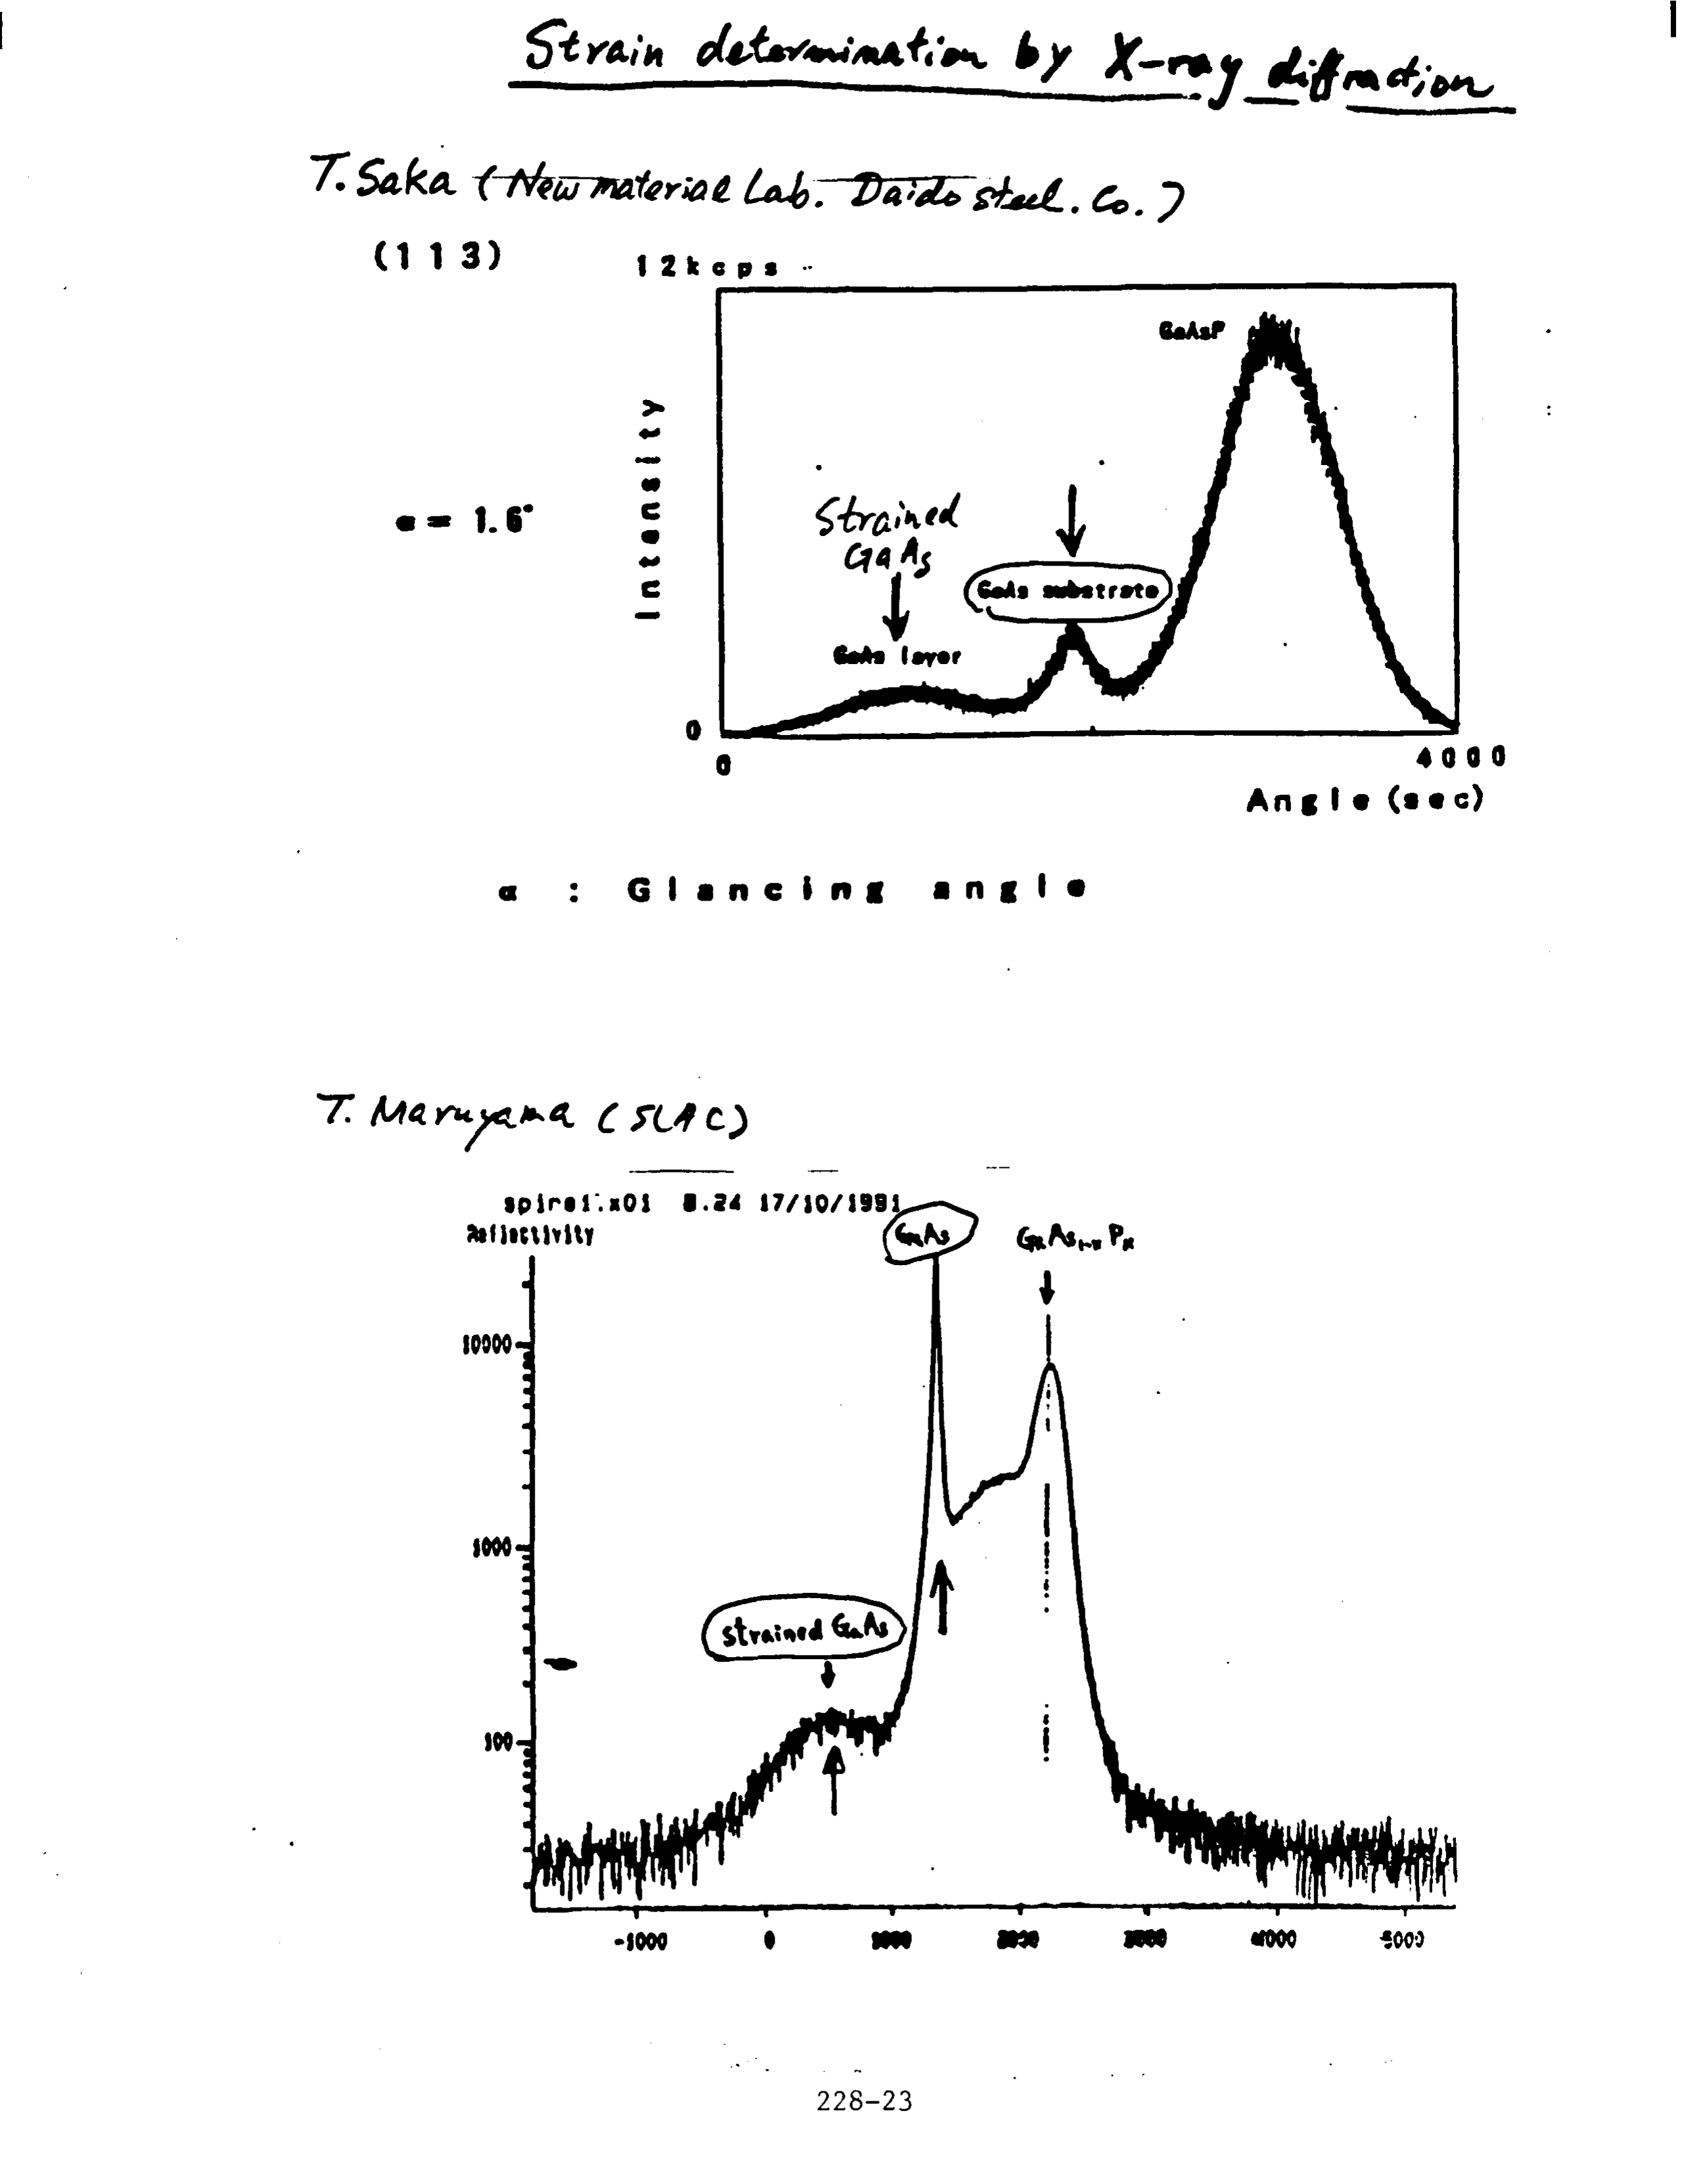 Strain determination by X-ray diffraction
T. Saka (New material Lab. Daido steel. Co.)
(113)
12kcps
GaAsP
Intensity
α = 1.6°
Strained
GaAs
GaAs substrate
GaAs layer
0
0
4000
Angle (sec)
α : Glancing angle
T. Maruyama (SLAC)
spire1.x01 8.24 17/10/1991
Reflectivity
GaAs
GaAs1-xPx
10000
1000
strained GaAs
100
-1000 0 1000 2000 3000 4000 5000
228-23